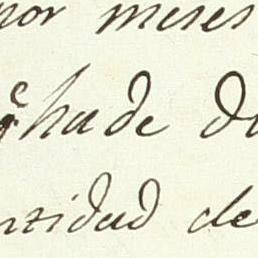 por meses
qe ha de d
ntidad de